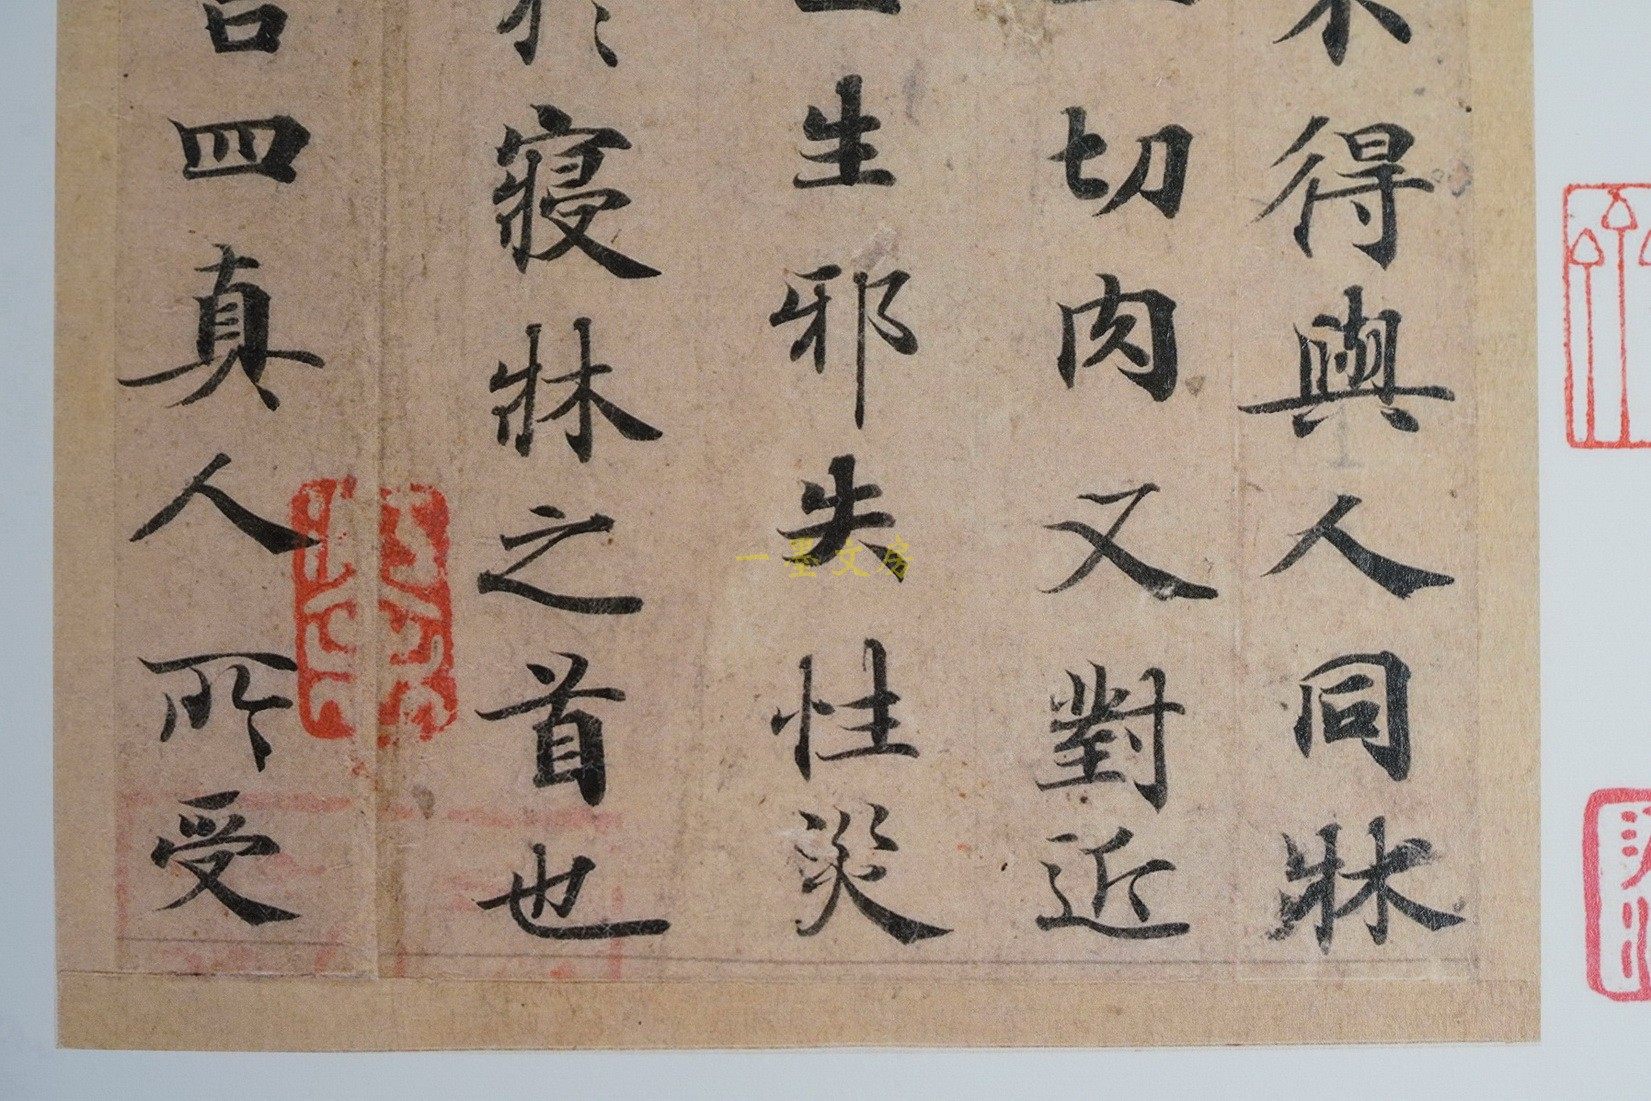 不得與人同牀
一切肉又對近
生邪失性災
於寢牀之首也
言四真人所受
一墨文房